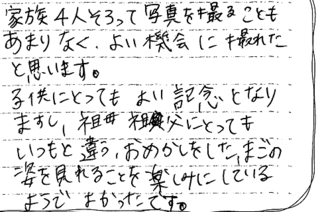 家族4人そろって写真を撮ることも
あまりなく、よい機会に撮れた
と思います。
子供にとってもよい記念となり
ますし、祖母祖父にとっても
いつもと違う、おめかしをした、まごの
姿を見れることを楽しみにしている
ようでよかったです。